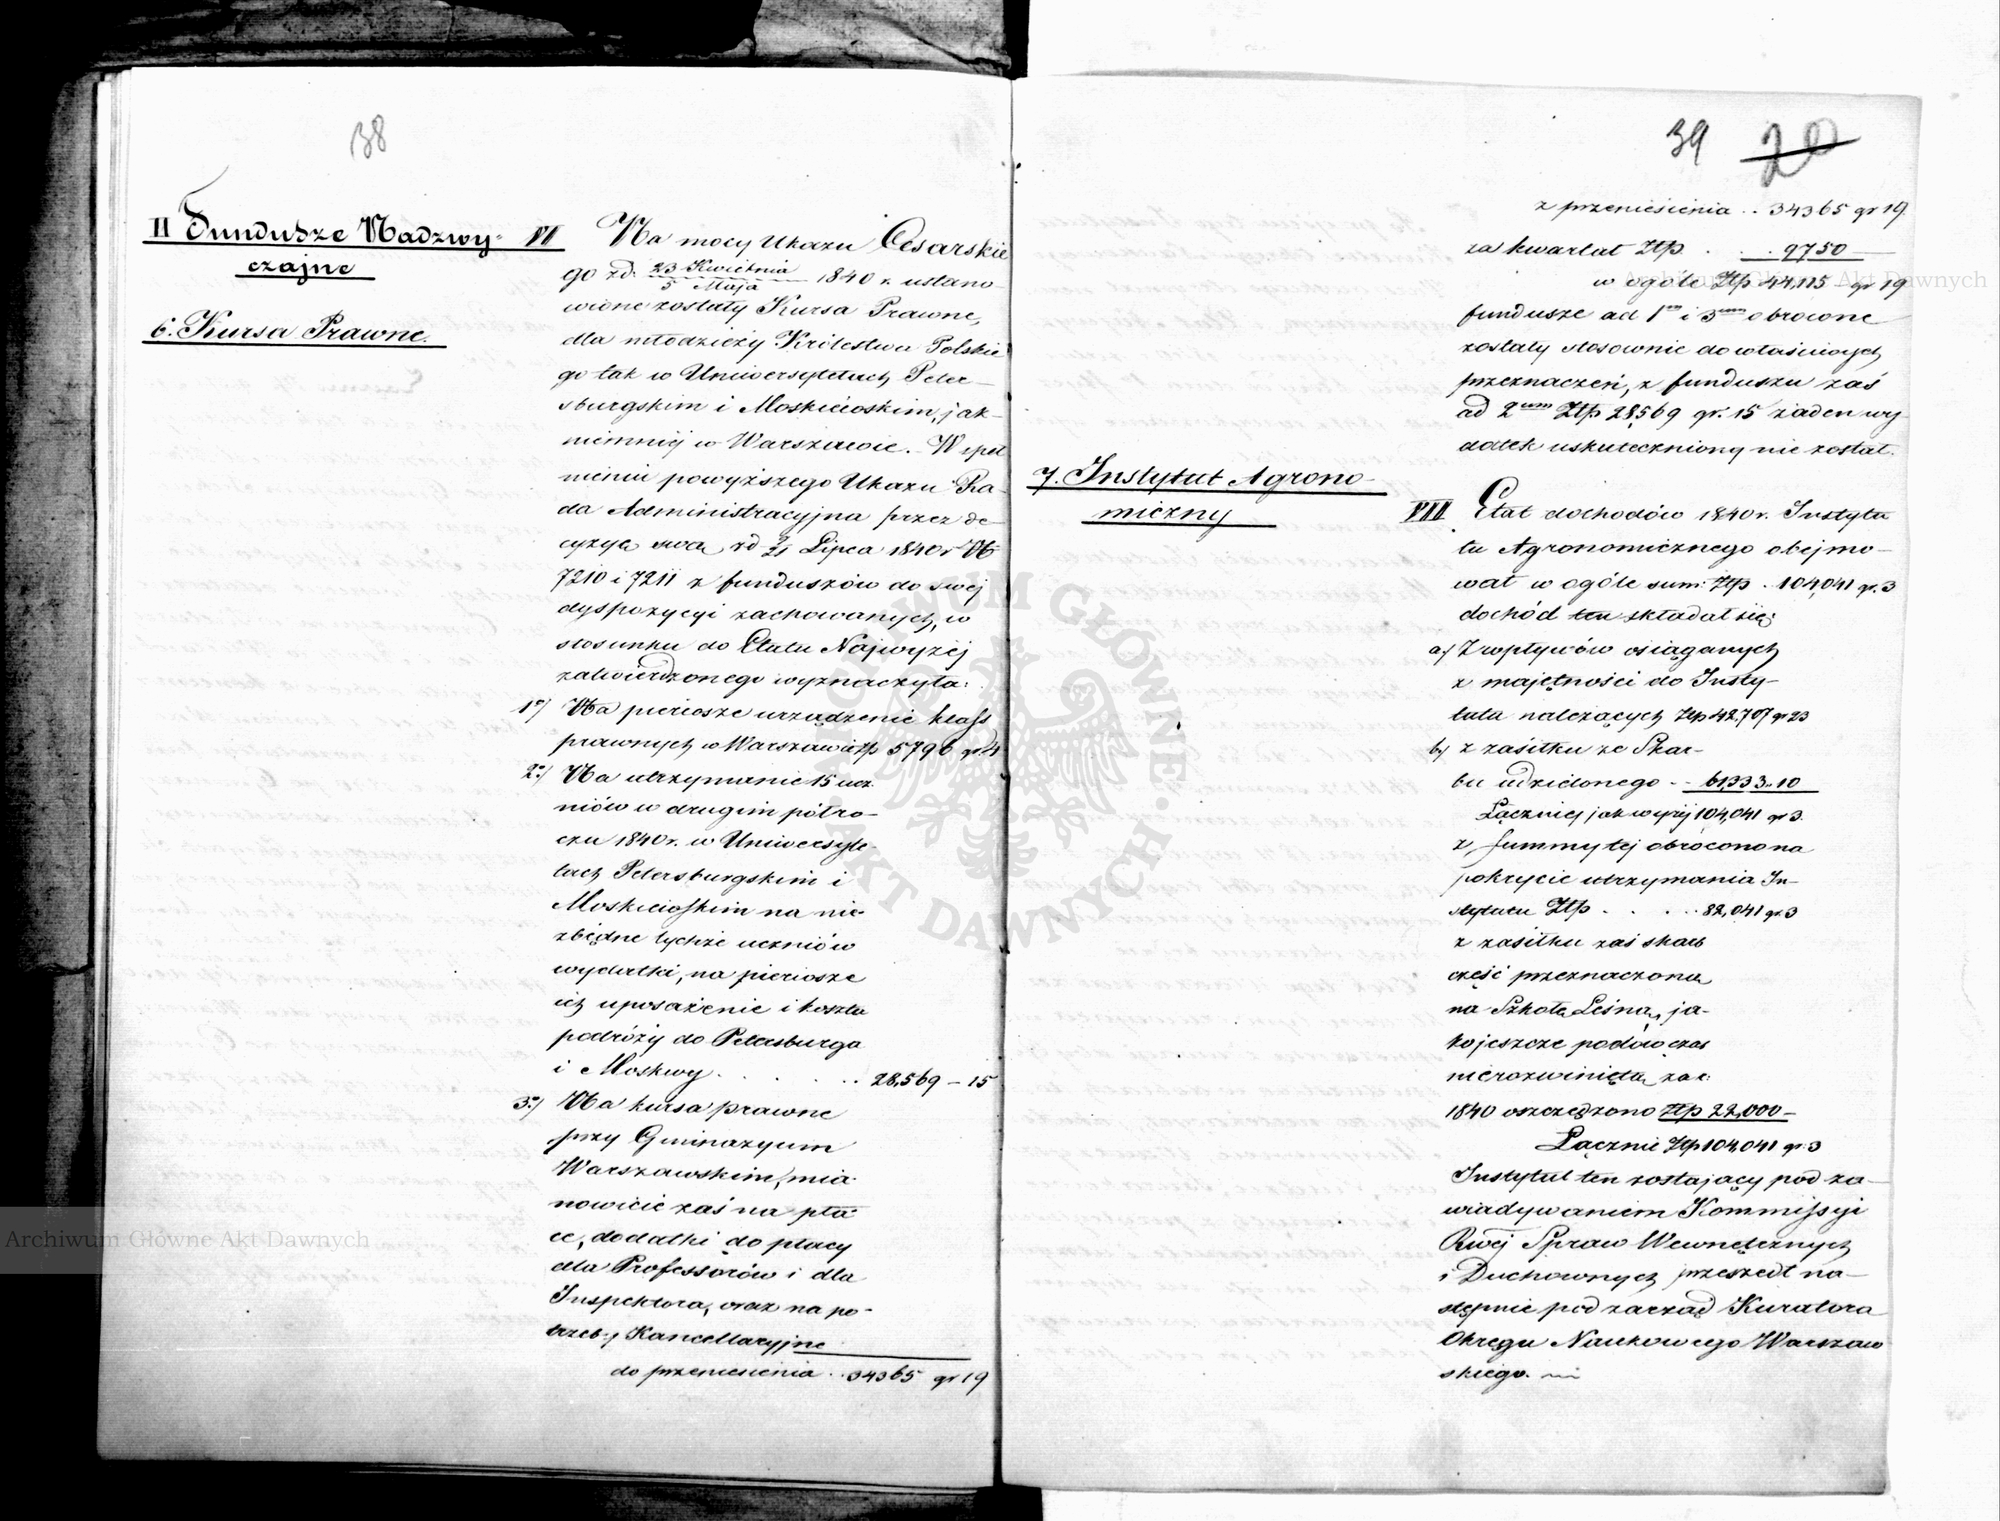 38
II Fundusze Nadzwy-
czajne
6. Kursa Prawne.
VI Na mocy Ukazu Cesarskie
go zd: 23 Kwietnia / 5 Maja 1840 r. ustano-
wione zostały Kursa Prawne,
dla młodzieży Królestwa Polskie
go tak w Uniwersytetach Peter-
sburgskim i Moskiewskim, jak-
niemniej w Warszawie. W speł
nieniu powyższego Ukazu Ra-
da Administracyjna przez de-
cyzyą swą zd 9/21 Lipca 1840 r N
7210 i 7211 z funduszów do swej
dyspozycyi zachowanych, w
stosunku do Etatu Najwyżéj
zatwierdzonego wyznaczyła:
1o/ Na pierwsze urządzenie klass
prawnych w Warszawie złp 5796 gr 4
2o/ Na utrzymanie 15 ucz-
niów w drugim półro-
czu 1840 r. w Uniwersyte-
tach Petersburgskim i
Moskiewskim na nie-
zbędne tychże uczniów
wydatki, na pierwsze
ich uposażenie i koszta
podróży do Petersburga
i Moskwy . . . . . . 28,569 – 15
3o/ Na kursa prawne
przy Gminazyum
Warszawskim, mia-
nowicie zaś na pła-
ce, dodatki do płacy
dla Professorów i dla
Inspektora, oraz na po-
trzeby Kancellaryjne
do przeniesienia . . 34365 gr 19
39 20
z przeniesienia . . 34365 gr 19.
za kwartał Złp. . . . 9750 —
w ogóle Złp 44,115 gr 19
fundusze ad 1um i 3um obrócone
zostały stosownie do właściwych
przeznaczeń, z funduszu zaś
ad 2um Złp 28,569 gr. 15 żaden wy-
datek uskuteczniony nie został.
7. Instytut Agrono-
miczny
VII Etat dochodów 1840 r. Instytu
tu Agronomicznego obejmo-
wał w ogóle sum: Złp . 104,041 gr. 3
dochód ten składał się:
a/ Z wpływów osiąganych
z majętności do Insty-
tutu należących Złp 42,707 gr 23
b/ z zasiłku ze Skar-
bu udzielonego - - 61,333 „ 10
Łączniéj jak wyżéj 104,041 gr 3.
z summy tej obrócono na
pokrycie utrzymania In-
stytutu Złp . . . . . 82,041 gr 3
z zasiłku zaś skarb
część przeznaczoną
na Szkołę Leśną, ja-
ko jeszcze podówczas
nierozwiniętą, za r:
1840 oszczędzono Złp 22,000 –
Łącznie Złp 104,041 gr. 3
Instytut ten zostający pod za-
wiadywaniem Kommissyi
Rwéj Spraw Wewnętrznych
i Duchownych przeszedł na-
stępnie pod zarząd Kuratora
Okręgu Naukowego Warszaw
skiego.
Archiwum Główne Akt Dawnych
Archiwum Główne Akt Dawnych
ARCHIWUM GŁÓWNE · AKT DAWNYCH ·